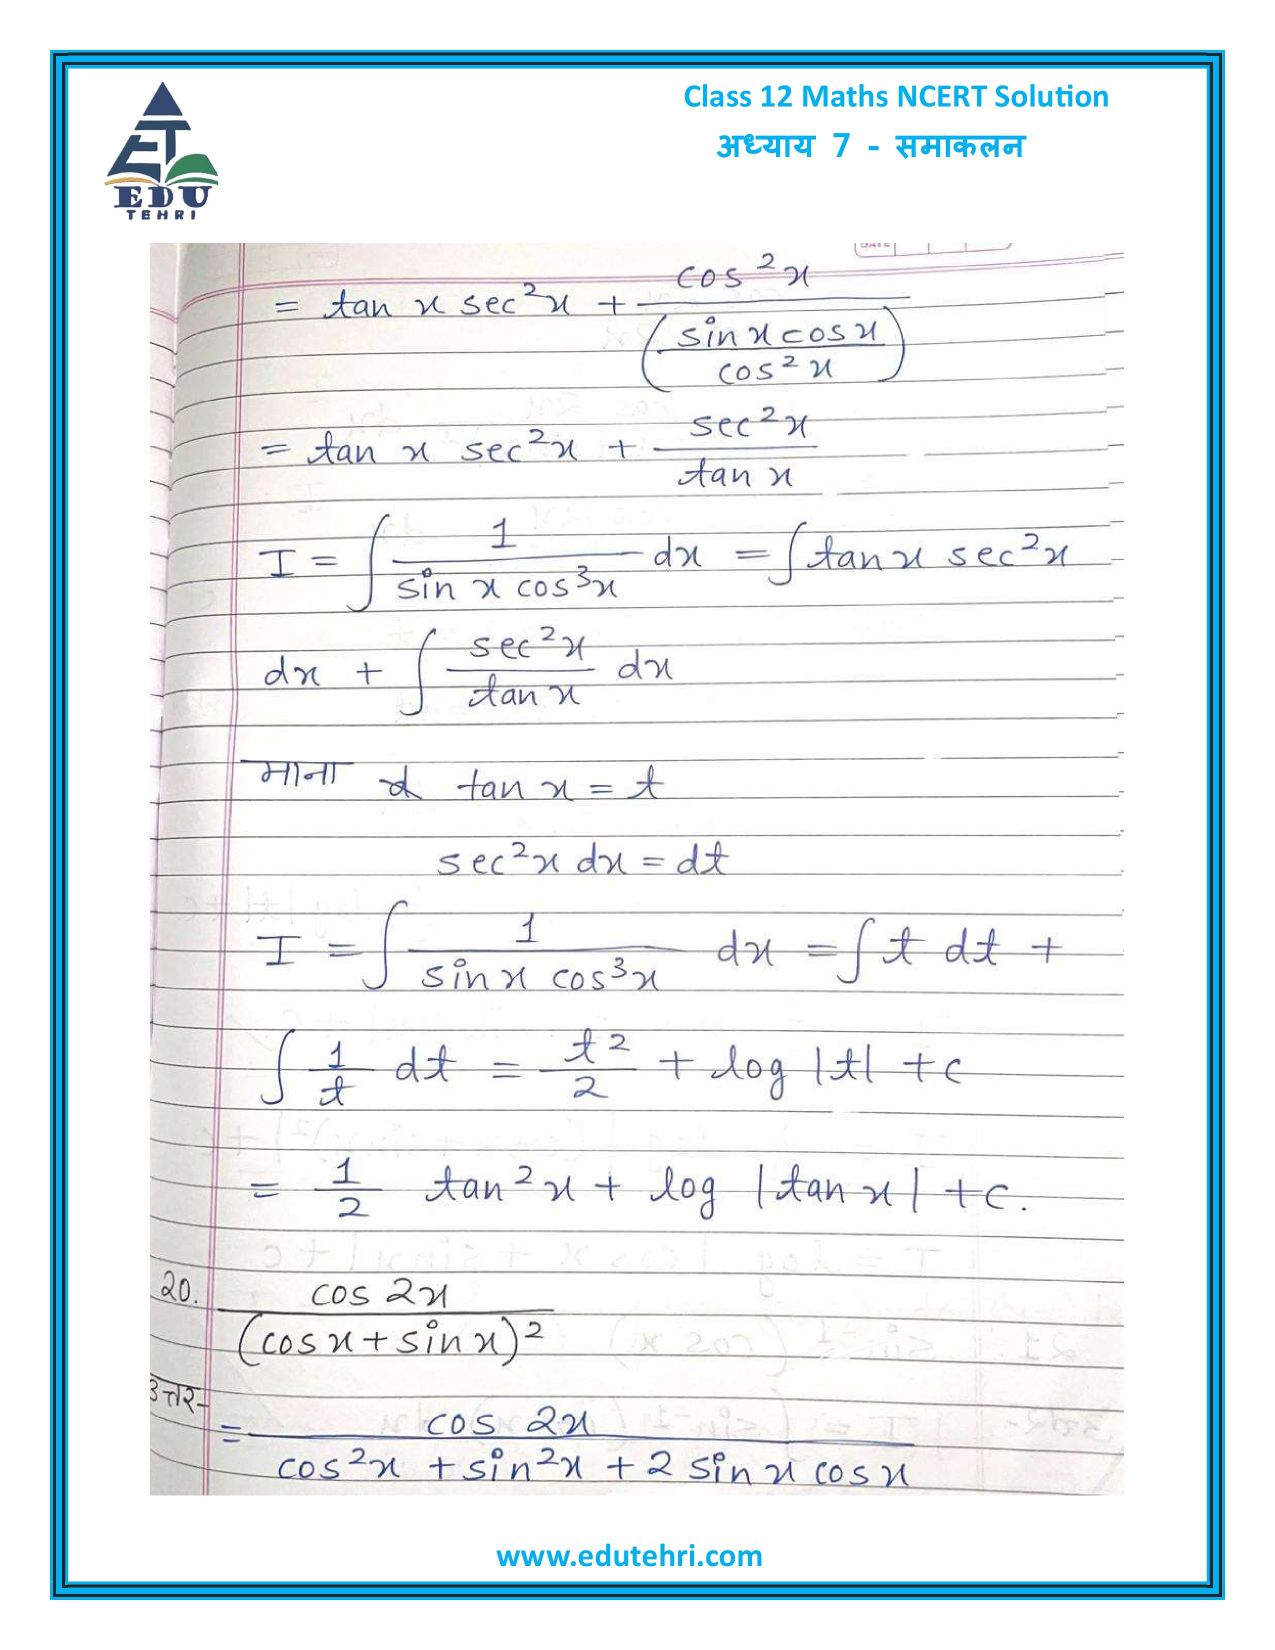 Class 12 Maths NCERT Solution
अध्याय 7 - समाकलन
ET
EDU
TEHRI
DATE
= tan x sec²x + cos²x / (sin x cos x / cos²x)
= tan x sec²x + sec²x / tan x
I = ∫ 1 / sin x cos³x dx = ∫ tan x sec²x
dx + ∫ sec²x / tan x dx
माना tan x = t
sec²x dx = dt
I = ∫ 1 / sin x cos³x dx = ∫ t dt +
∫ 1/t dt = t²/2 + log |t| + c
= 1/2 tan²x + log |tan x| + c.
20. cos 2x / (cos x + sin x)²
उत्तर-
= cos 2x / cos²x + sin²x + 2 sin x cos x
www.edutehri.com